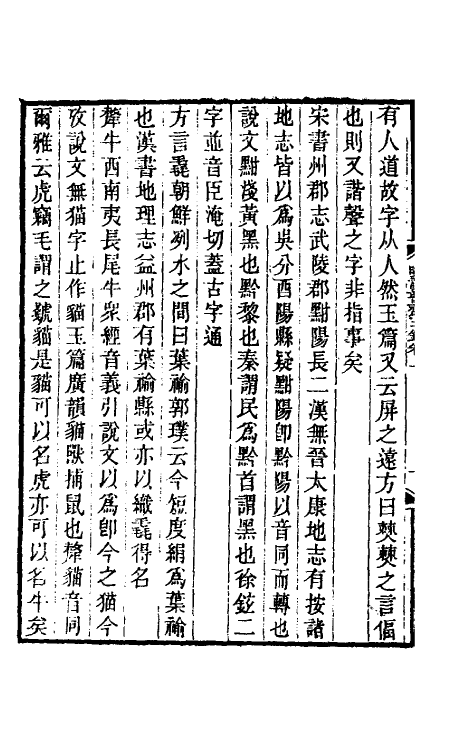 有人道故字从人然玉篇又云屏之遠方曰僰僰之言偪
也則又諧聲之字非指事矣
宋書州郡志武陵郡黚陽長二漢無晉太康地志有按諸
地志皆以爲吳分酉陽縣疑黚陽卽黔陽以音同而轉也
說文黚淺黃黑也黔黎也秦謂民爲黔首謂黑也徐鉉二
字並音臣淹切蓋古字通
方言毳朝鮮洌水之間曰葉輸郭璞云今短度絹爲葉輸
也漢書地理志益州郡有葉榆縣或亦以織毳得名
犛牛西南夷長尾牛衆經音義引說文以爲卽今之猫今
攷說文無猫字止作貓玉篇廣韻貓獸捕鼠也犛貓音同
爾雅云虎竊毛謂之虦貓是貓可以名虎亦可以名牛矣